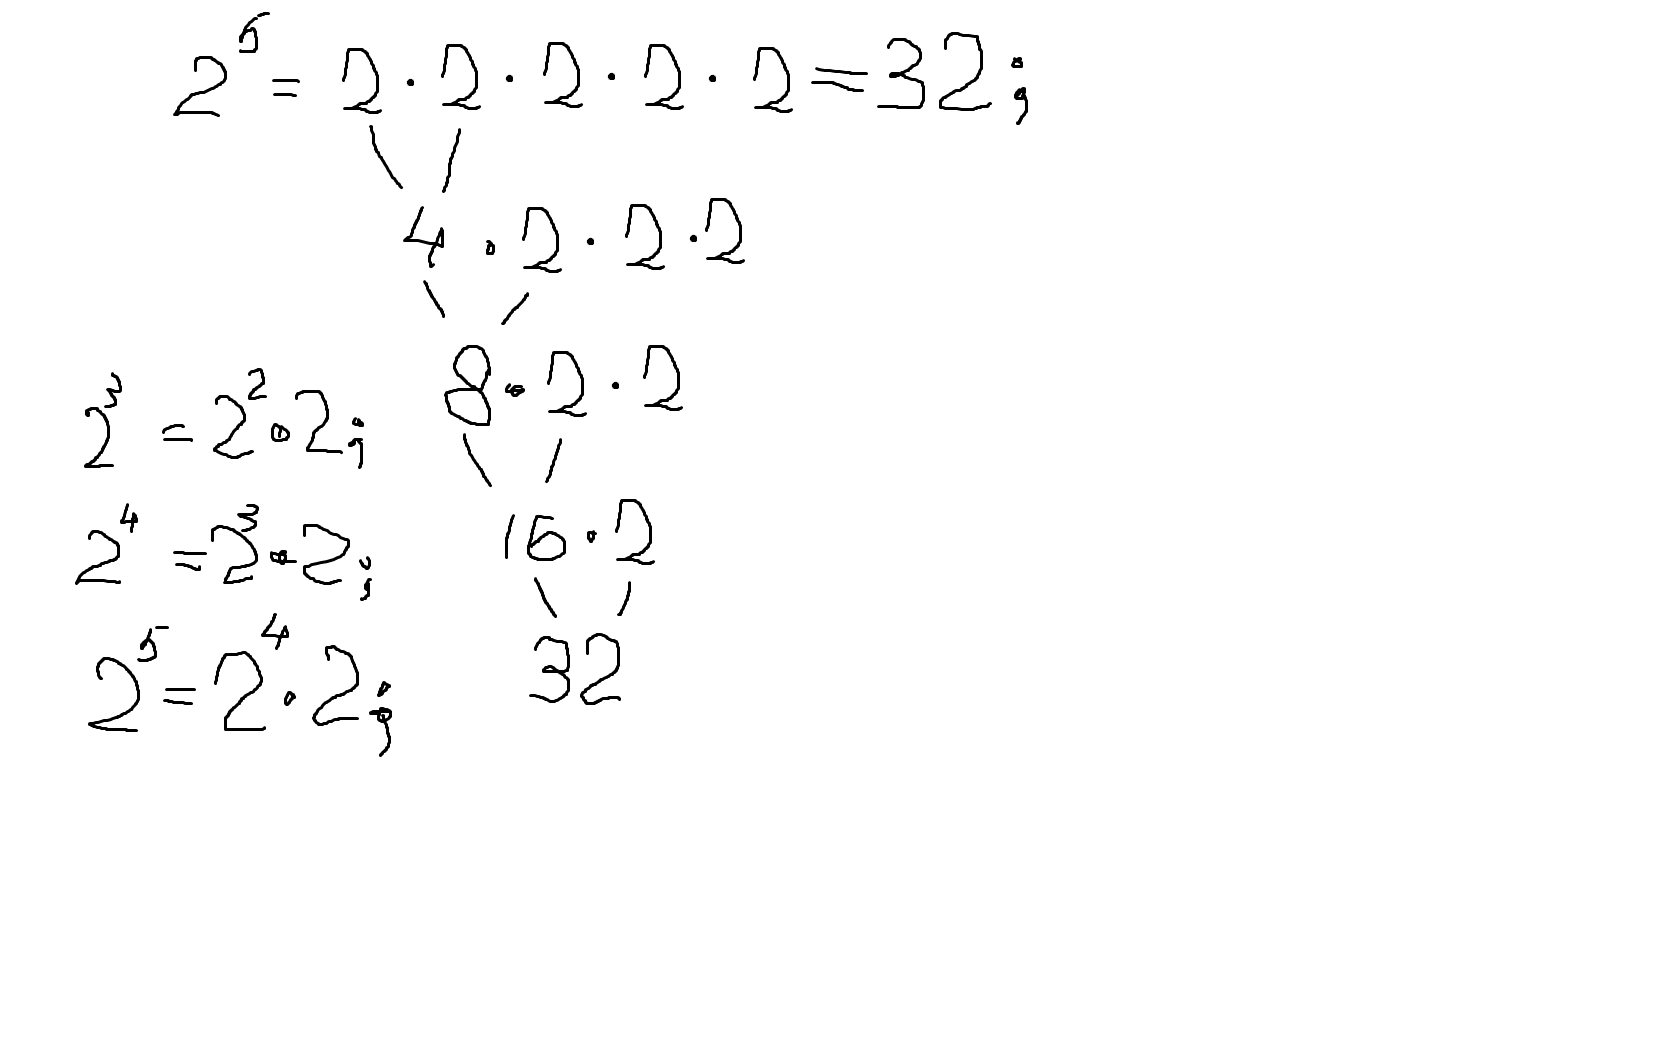 2⁵ = 2 · 2 · 2 · 2 · 2 = 32;
4 · 2 · 2 · 2
8 · 2 · 2
2³ = 2² · 2;
16 · 2
2⁴ = 2³ · 2;
32
2⁵ = 2⁴ · 2;